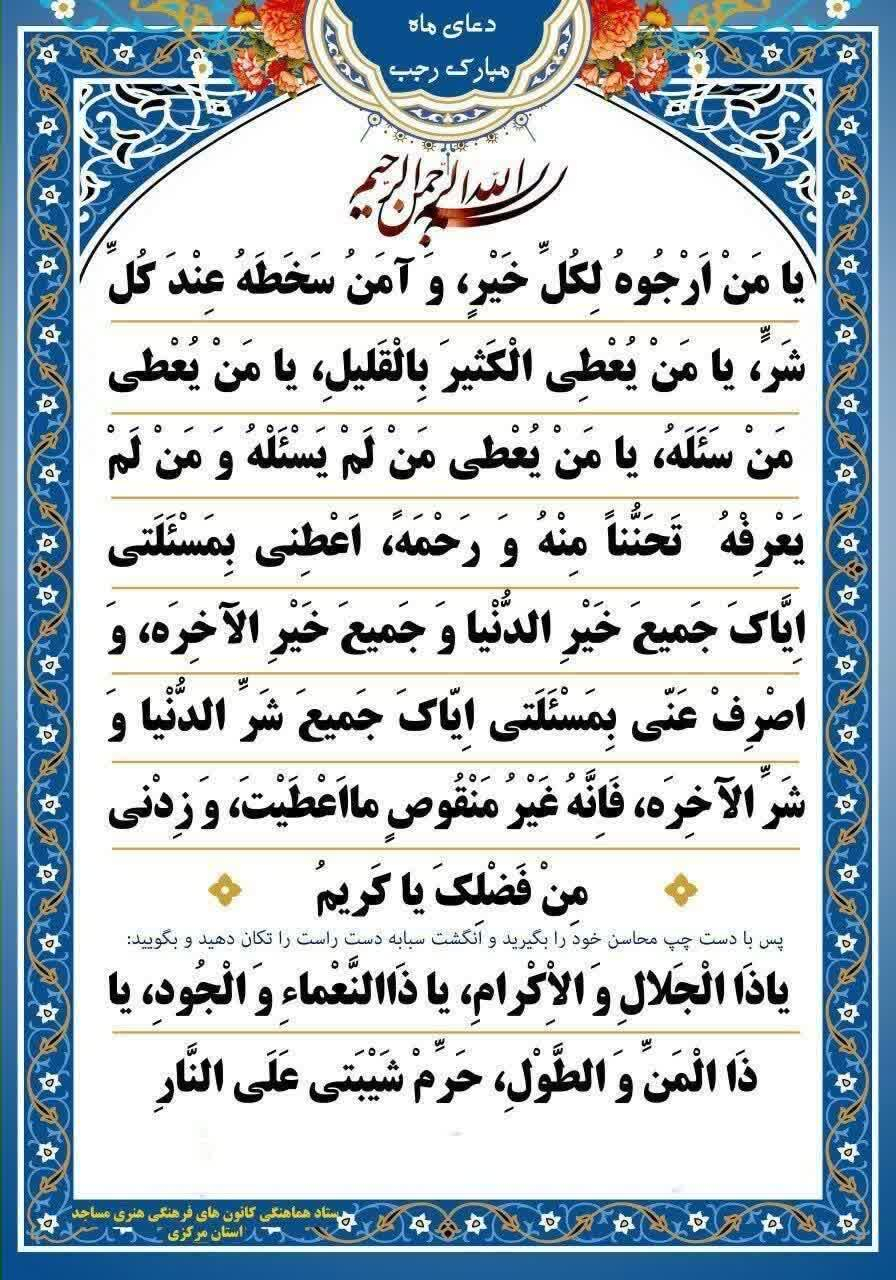 دعای ماه
مبارک رجب
بسم الله الرحمن الرحیم
یا مَنْ اَرْجُوهُ لِکُلِّ خَیْرٍ، وَ آمَنُ سَخَطَهُ عِنْدَ کُلِّ
شَرٍّ، یا مَنْ یُعْطِی الْکَثیرَ بِالْقَلیلِ، یا مَنْ یُعْطی
مَنْ سَئَلَهُ، یا مَنْ یُعْطی مَنْ لَمْ یَسْئَلْهُ وَ مَنْ لَمْ
یَعْرِفْهُ تَحَنُّناً مِنْهُ وَ رَحْمَهً، اَعْطِنی بِمَسْئَلَتی
اِیَّاکَ جَمیعَ خَیْرِ الدُّنْیا وَ جَمیعَ خَیْرِ الآخِرَه، وَ
اصْرِفْ عَنّی بِمَسْئَلَتی اِیّاکَ جَمیعَ شَرِّ الدُّنْیا وَ
شَرِّ الآخِرَه، فَاِنَّهُ غَیْرُ مَنْقُوصٍ مااَعْطَیْتَ، وَ زِدْنی
مِنْ فَضْلِکَ یا کَریمُ
پس با دست چپ محاسن خود را بگیرید و انگشت سبابه دست راست را تکان دهید و بگویید:
یاذَا الْجَلالِ وَ الاِْکْرامِ، یا ذَاالنَّعْماءِ وَ الْجُودِ، یا
ذَا الْمَنِّ وَ الطَّوْلِ، حَرِّمْ شَیْبَتی عَلَی النَّارِ
ستاد هماهنگی کانون های فرهنگی هنری مساجد
استان مرکزی